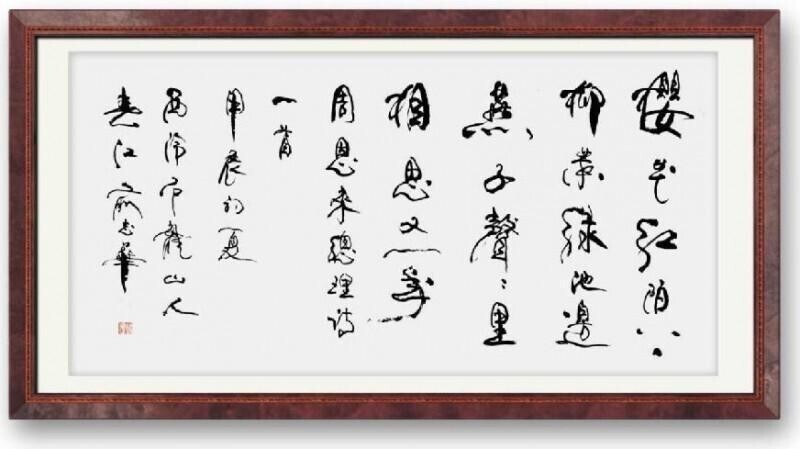 櫻花红陌上
柳葉綠池邊
燕子聲〻里
相思又一年
周恩來總理詩
一首
甲辰初夏
西泠龍山人
春江華